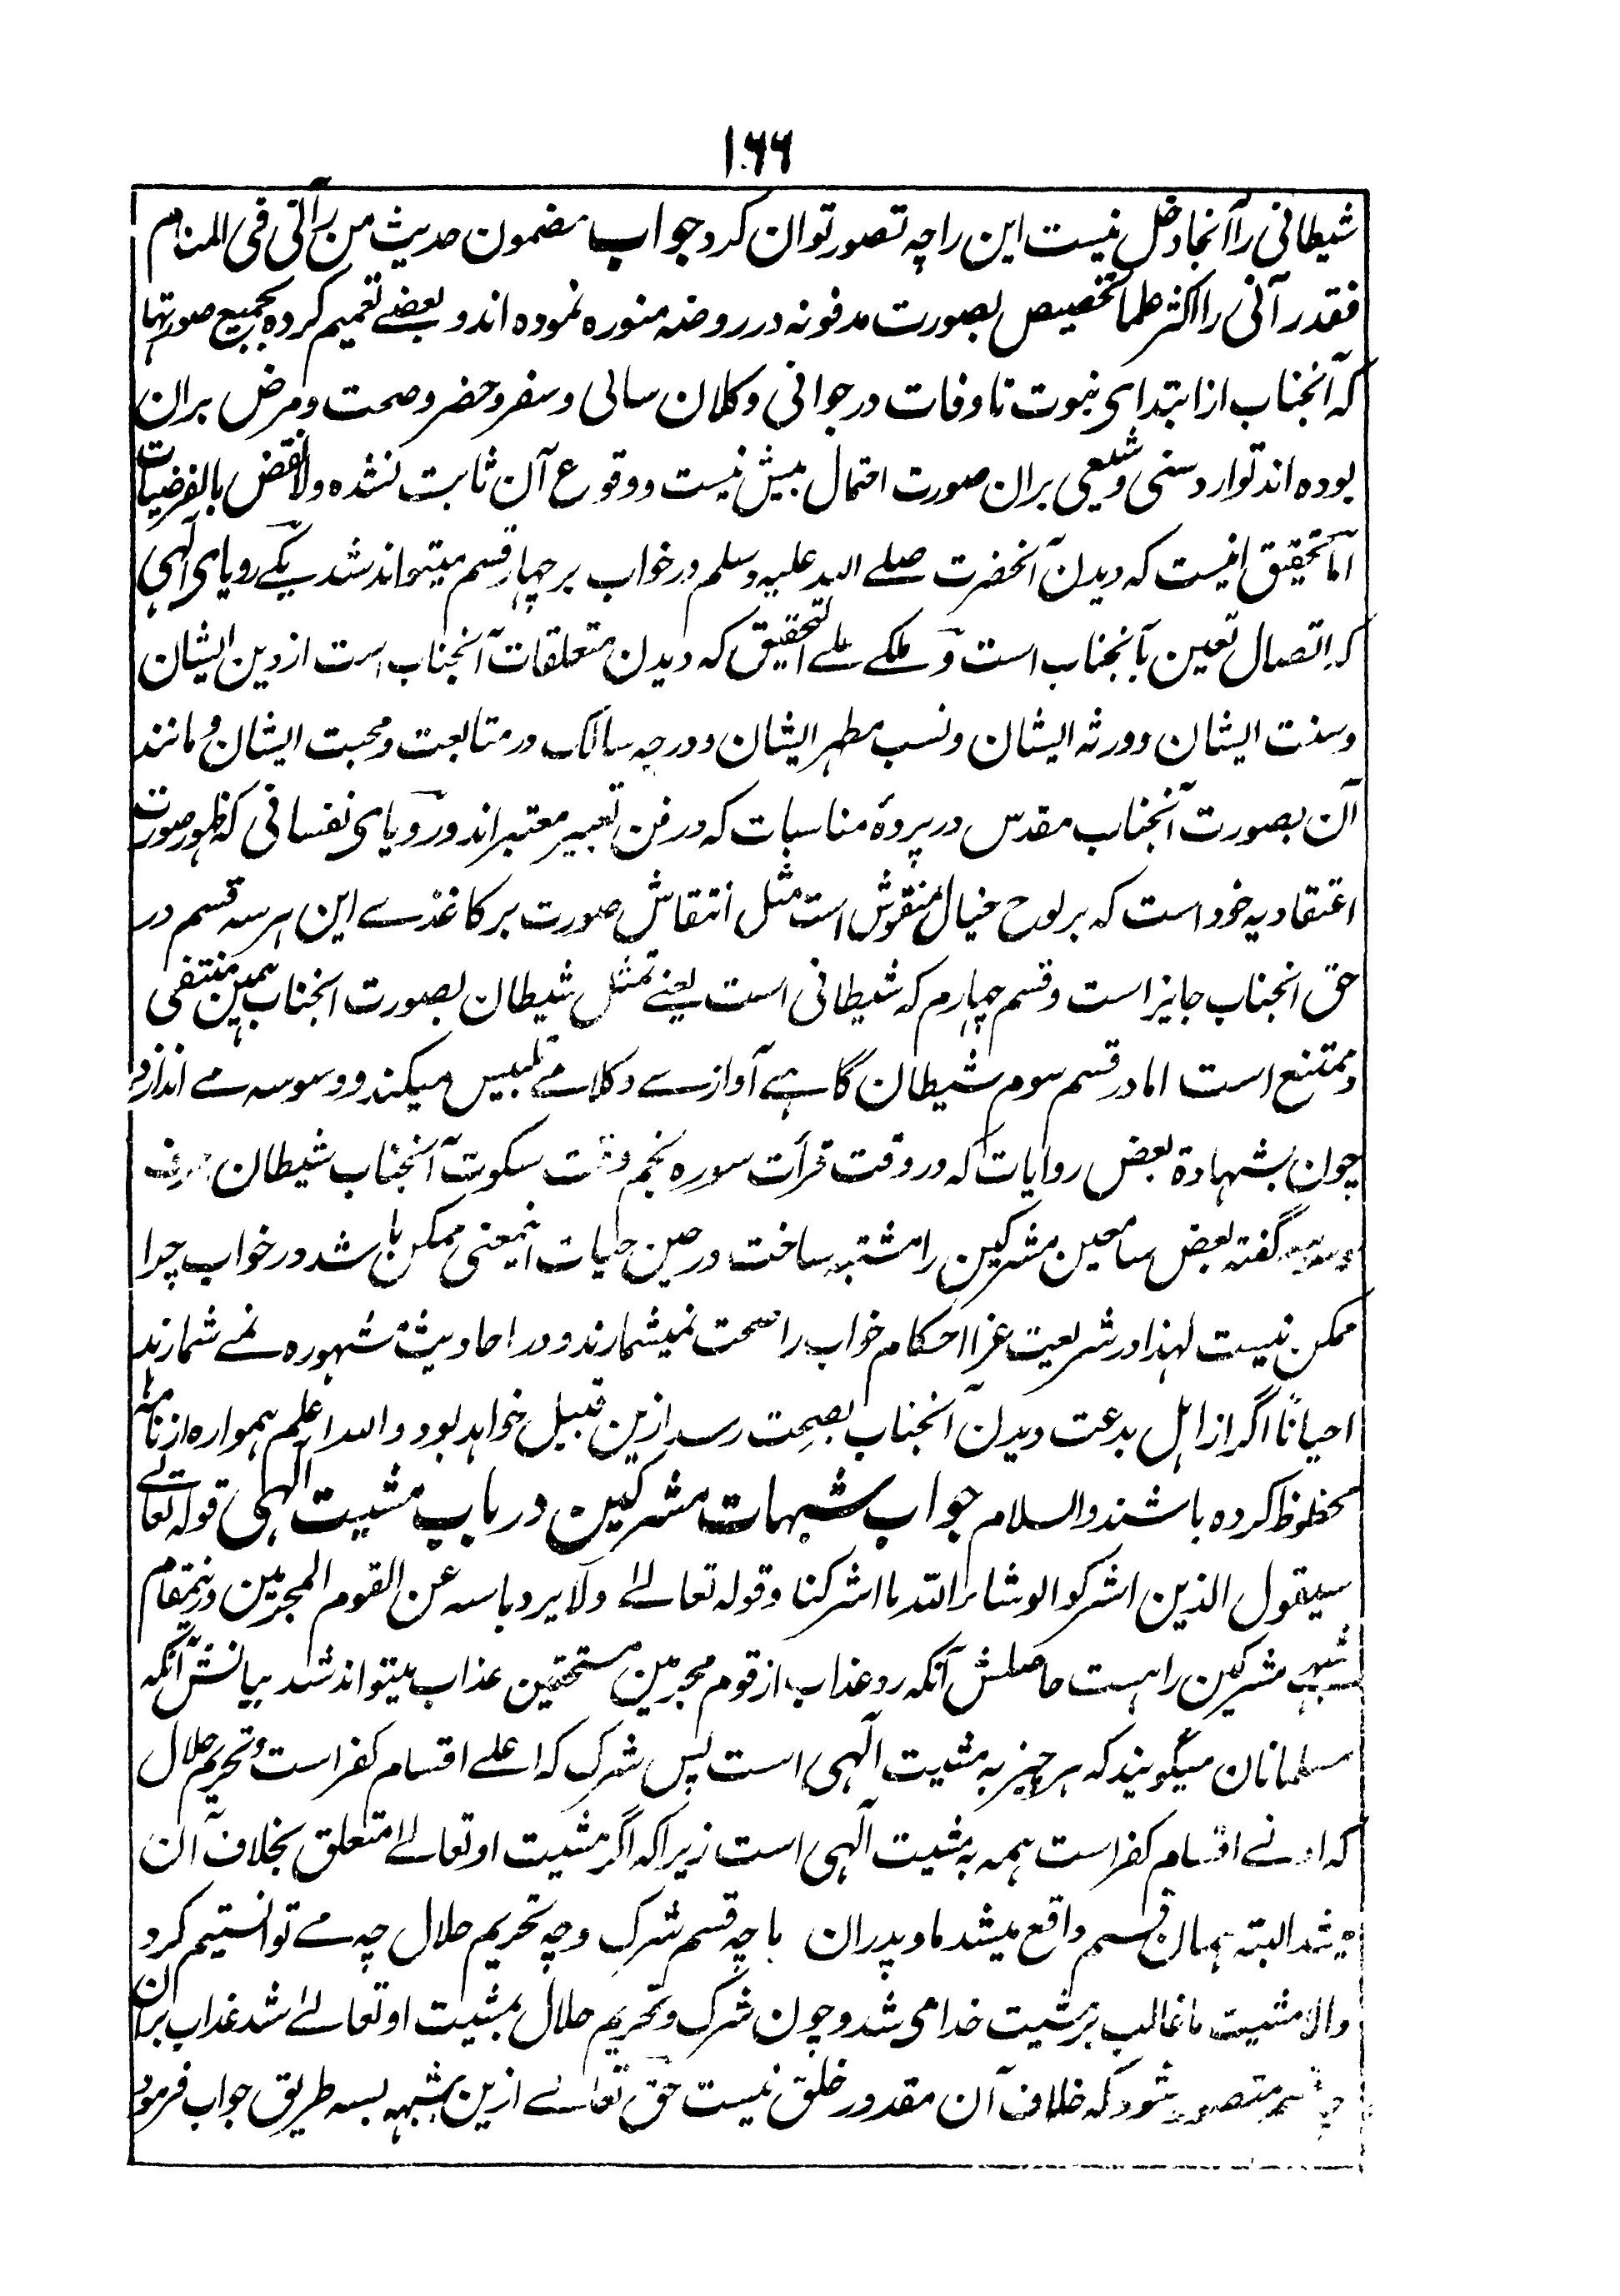 ۱۶۶
شیطانی را آنجا دخل نیست این را چه تصور توان کرد جواب مضمون حدیث من رآنی فی المنام
فقد رآنی را اکثر علما تخصیص بصورت مدفونه در روضه منوره نموده اند و بعضے تعمیم کرده بجمیع صورتها
که آنجناب از ابتدای نبوت تا وفات در جوانی و کلان سالی و سفر و حضر و صحت و مرض بران
بوده اند توارد سنی و شیعی بران صورت احتمال بیش نیست و وقوع آن ثابت نشده ولا نقض بالفرضیات
اما تحقیق اینست که دیدن آنحضرت صلے الله علیه وسلم در خواب بر چهار قسم میتواند شد یکے رویای الٰهی
که اتصال تعین بآنجناب است و ملکے علے التحقیق که دیدن متعلقات آنجناب است از دین ایشان
و سنت ایشان و ورثه ایشان و نسب مطهر ایشان و درجه سالک در متابعت و محبت ایشان و مانند
آن بصورت آنجناب مقدس در پردهٔ مناسبات که در فن تعبیر معتبر اند و رویای نفسانی که ظهور صورت
اعتقادیه خود است که بر لوح خیال منقوش است مثل انتقاش صورت بر کاغذے این هر سه قسم در
حق آنجناب جایز است و قسم چهارم که شیطانی است یعنے تمثل شیطان بصورت آنجناب همین منتفی
و ممتنع است اما در قسم سوم شیطان گاهے آوازے و کلامے تلبیس میکند و وسوسه مے اندازد
چون بشهادة بعض روایات که در وقت قرأت سوره نجم وقت سکوت آنجناب شیطان حرف
گفته بعض سامعین مشرکین را مشتبه ساخت در حین حیات اینمعنی ممکن باشد در خواب چرا
ممکن نیست لهذا در شریعت غرا احکام خواب را صحت نمیشمارند و در احادیث مشهوره نمے شمارند
احیانًا اگر از اهل بدعت دیدن آنجناب بصحت رسد ازین قبیل خواهد بود والله اعلم همواره از نامه
محظوظ کرده باشند والسلام جواب شبهات مشرکین در باب مشیت الٰهی قوله تعالے
سیقول الذین اشرکوا لو شاء الله ما اشرکنا وقوله تعالے ولا یرد باسه عن القوم المجرمین درینمقام
شبهه مشرکین را هست حاصلش آنکه رد عذاب از قوم مجرمین مستحقین عذاب میتواند شد بیانش آنکه
مسلمانان میگویند که هر چیز به مشیت الٰهی است پس شرک که اعلے اقسام کفر است و تحریم حلال
که ادنے اقسام کفر است همه به مشیت الٰهی است زیرا که اگر مشیت او تعالے متعلق بخلاف آن
میشد البته همان قسم واقع میشد ما و پدران ما چه قسم شرک و چه تحریم حلال چه مے توانستیم کرد
والا مشیت ما غالب بر مشیت خدا می شد و چون شرک و تحریم حلال بمشیت او تعالے شد عذاب بران
متصور شود که خلاف آن مقدور خلق نیست حق تعالے ازین شبهه بسه طریق جواب فرمود